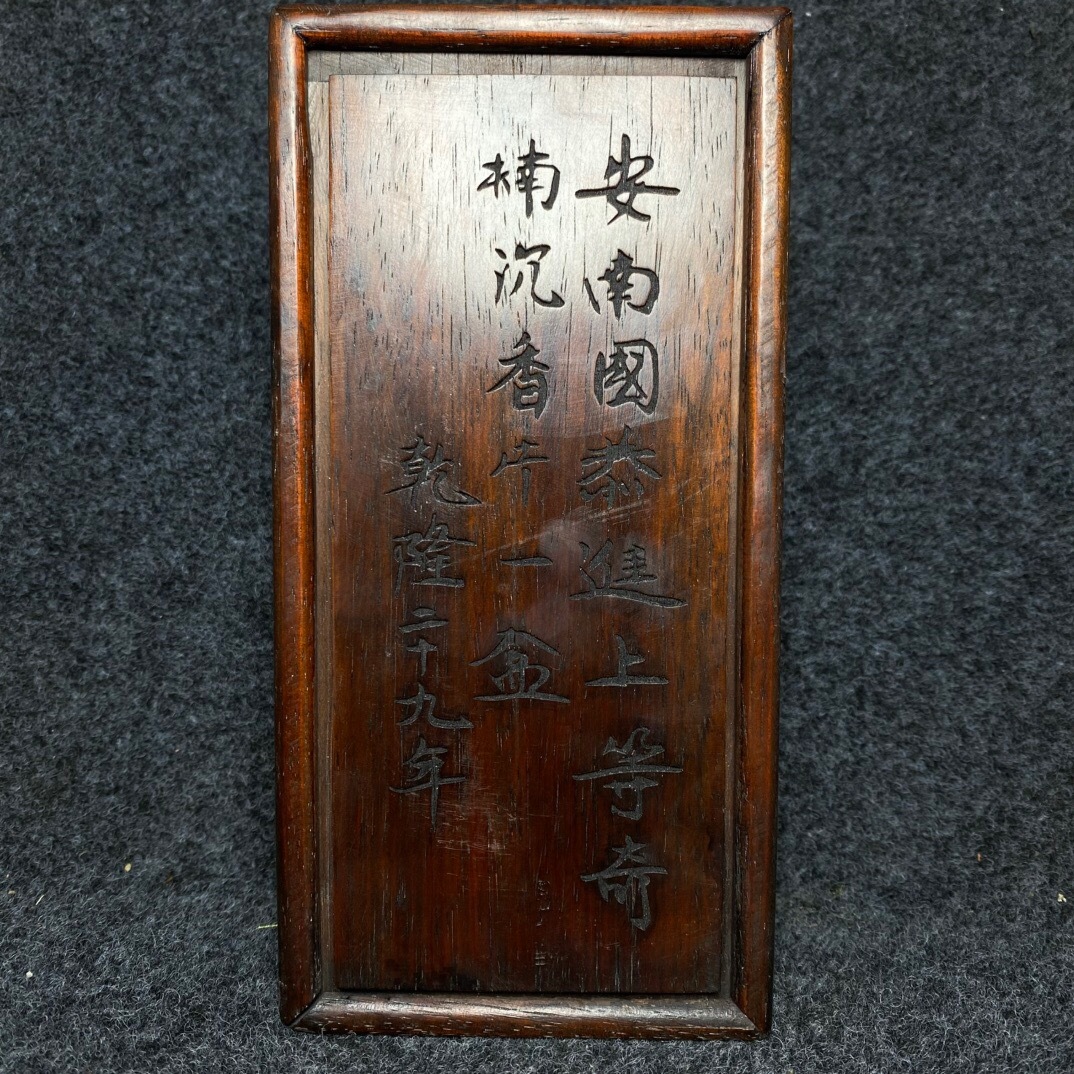 安南國恭進上等奇
楠沉香午一盒
乾隆二十九年